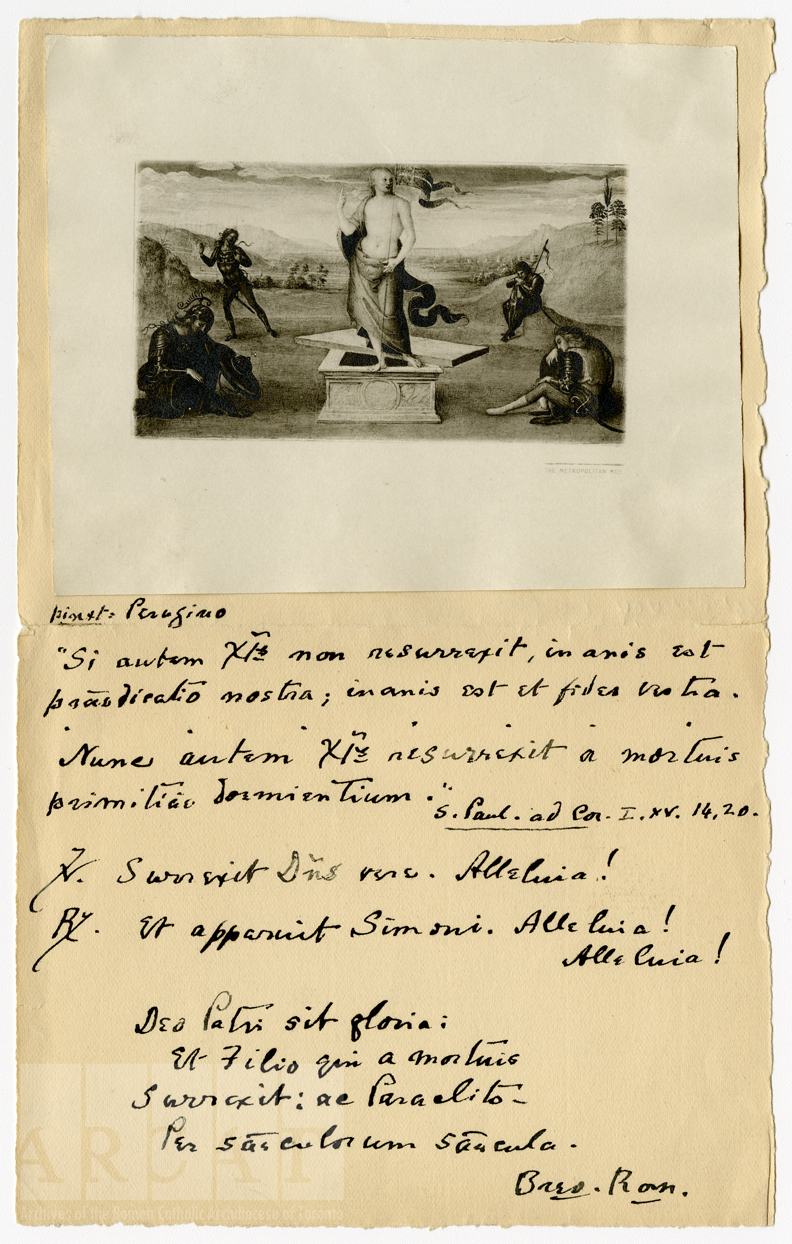 THE METROPOLITAN MUS
pinxt: Perugino
"Si autem X̃P̃s non resurrexit, inanis est
prædicatiō nostra; inanis est et fides vestra.
"Nunc autem X̃P̃s resurrexit a mortuis
primitiæ dormientium."
S. Paul. ad Cor. I. xv. 14, 20.
℣. Surrexit Dñs vere. Alleluia!
℟. Et apparuit Simoni. Alleluia!
Alleluia!
Deo Patri sit gloria:
Et Filio qui a mortuis
Surrexit: ac Paraclito-
Per sæculorum sæcula.
Brev. Rom.
ARCAT
Archives of the Roman Catholic Archdiocese of Toronto